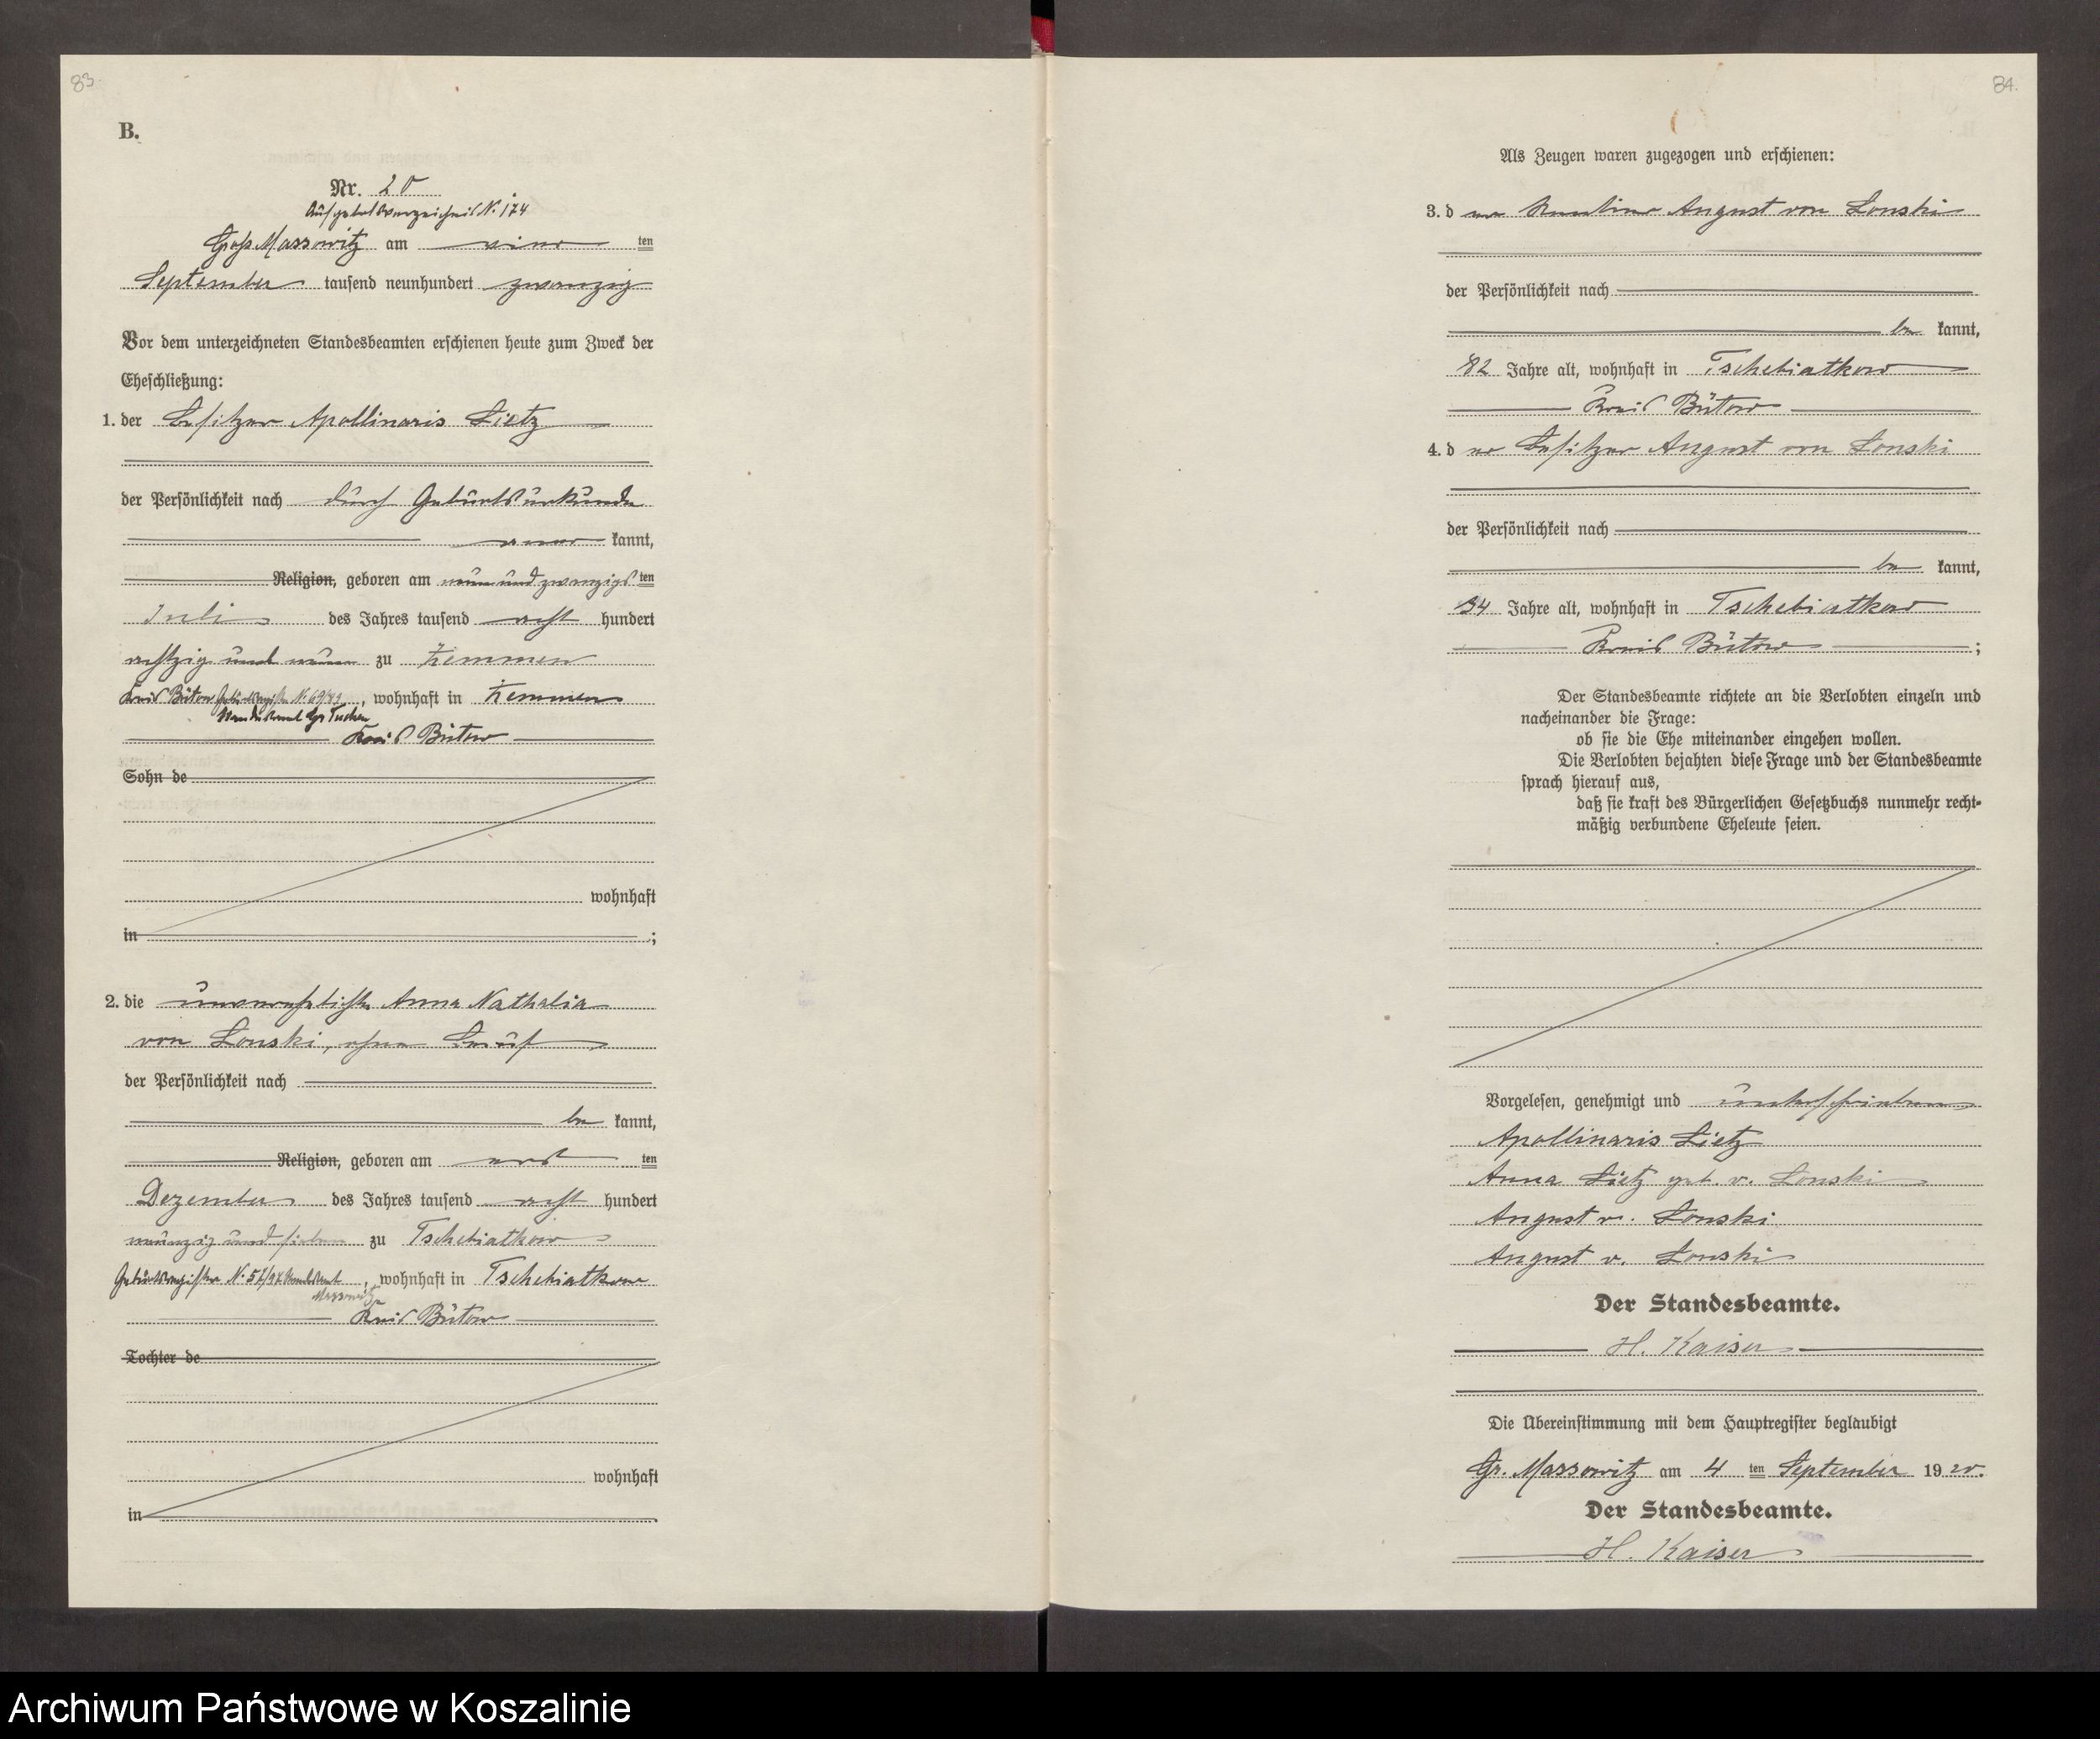 83.
B.
Nr. 20
Aufgebotsverzeichnis N. 174
Groß Massowitz am vier ten
September tausend neunhundert zwanzig
Vor dem unterzeichneten Standesbeamten erschienen heute zum Zweck der
Eheschließung:
1. der Besitzer Apollinaris Lietz
der Persönlichkeit nach durch Geburtsurkunde
aner kannt,
Religion, geboren am neunundzwanzigs ten
Juli des Jahres tausend acht hundert
achtzig und neun zu Zemmen
Kreis Bütow Geburtsregister N. 69/89, wohnhaft in Zemmen
Standesamt Gr Tuchen
Kreis Bütow
Sohn de
wohnhaft
in ;
2. die unverehelichte Anna Nathalia
von Lonski, ohne Beruf
der Persönlichkeit nach
be kannt,
Religion, geboren am erst ten
Dezember des Jahres tausend acht hundert
neunzig und sieben zu Tschebiatkow
Geburtsregister N. 57/97 Standesamt, wohnhaft in Tschebiatkow
Massowitz
Kreis Bütow
Tochter de
wohnhaft
in
84.
Als Zeugen waren zugezogen und erschienen:
3. d er Rentier August von Lonski
der Persönlichkeit nach
be kannt,
82 Jahre alt, wohnhaft in Tschebiatkow
Kreis Bütow
4. d er Besitzer August von Lonski
der Persönlichkeit nach
be kannt,
34 Jahre alt, wohnhaft in Tschebiatkow
Kreis Bütow ;
Der Standesbeamte richtete an die Verlobten einzeln und
nacheinander die Frage:
ob sie die Ehe miteinander eingehen wollen.
Die Verlobten bejahten diese Frage und der Standesbeamte
sprach hierauf aus,
daß sie kraft des Bürgerlichen Gesetzbuchs nunmehr recht-
mäßig verbundene Eheleute seien.
Vorgelesen, genehmigt und unterschrieben
Apollinaris Lietz
Anna Lietz geb. v. Lonski
August v. Lonski
August v. Lonski
Der Standesbeamte.
H. Kaiser
Die Übereinstimmung mit dem Hauptregister beglaubigt
Gr. Massowitz am 4 ten September 19 20.
Der Standesbeamte.
H. Kaiser
Archiwum Państwowe w Koszalinie